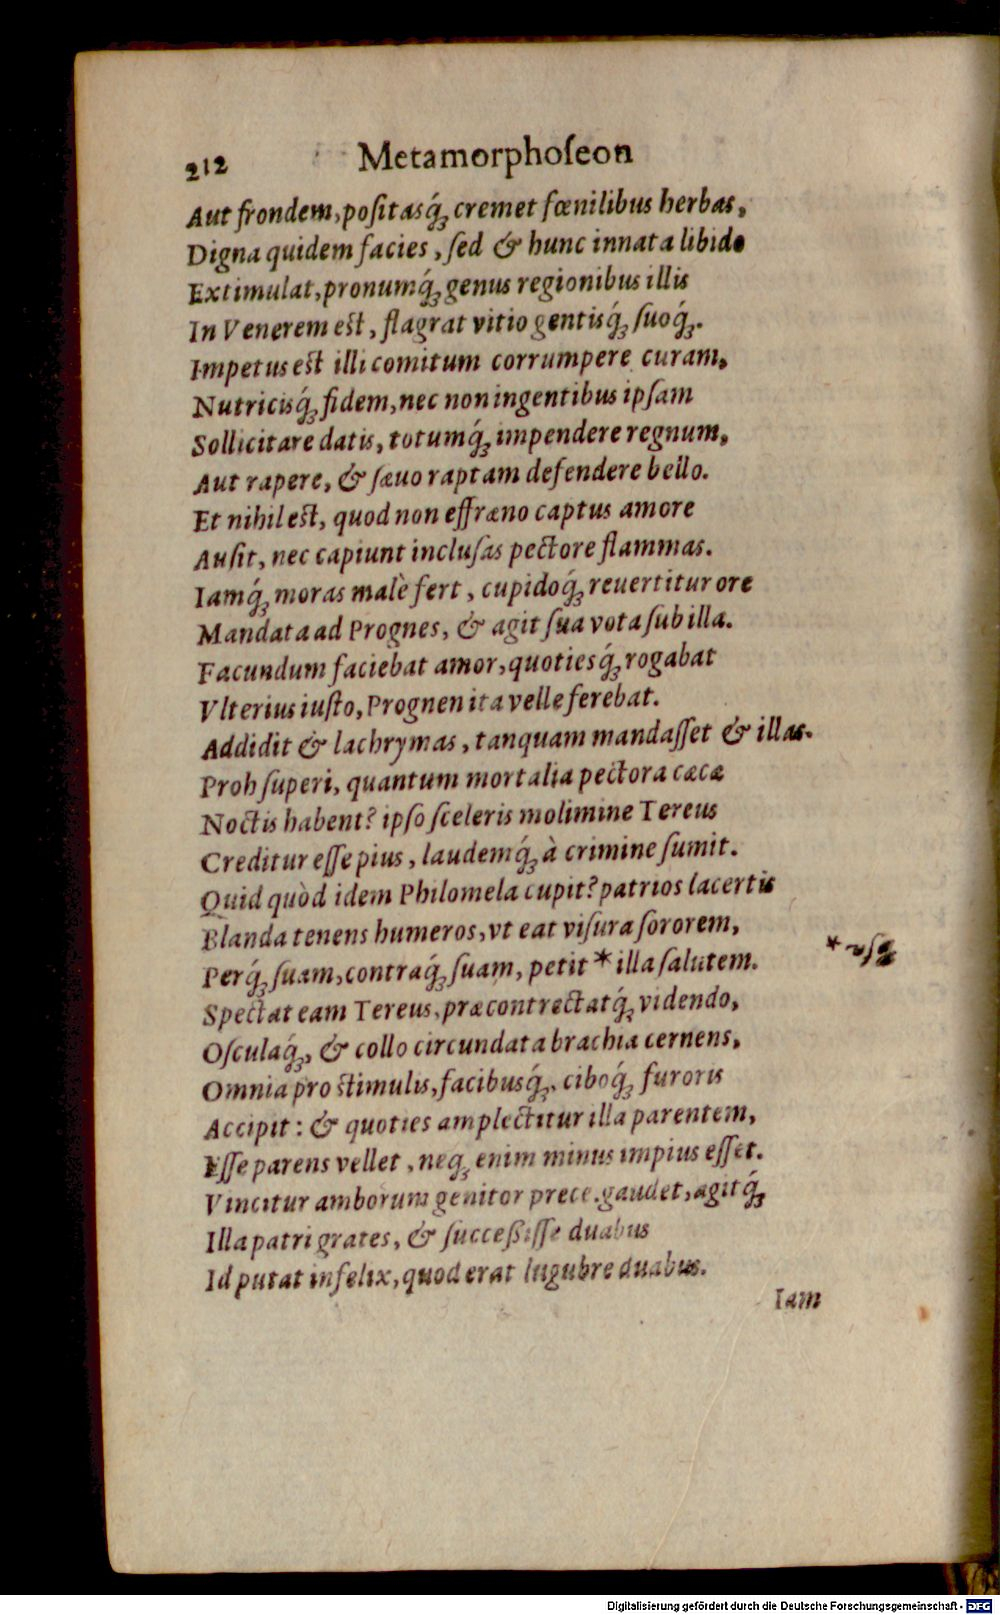 212 Metamorphoſeon
Aut frondem, poſitasq́ꝫ cremet fœnilibus herbas,
Digna quidem facies, ſed & hunc innata libido
Extimulat, pronumq́ꝫ genus regionibus illis
In Venerem est, flagrat vitio gentisq́ꝫ ſuoq́ꝫ.
Impetus est illi comitum corrumpere curam,
Nutricisq́ꝫ fidem, nec non ingentibus ipſam
Sollicitare datis, totumq́ꝫ impendere regnum,
Aut rapere, & ſæuo raptam defendere bello.
Et nihil est, quod non effræno captus amore
Auſit, nec capiunt incluſas pectore flammas.
Iamq́ꝫ moras malè fert, cupidoq́ꝫ reuertitur ore
Mandata ad Prognes, & agit ſua vota ſub illa.
Facundum faciebat amor, quotiesq́ꝫ rogabat
Vlterius iuſto, Prognen ita velle ferebat.
Addidit & lachrymas, tanquam mandaſſet & illas.
Proh ſuperi, quantum mortalia pectora cæcæ
Noctis habent? ipſo ſceleris molimine Tereus
Creditur eſſe pius, laudemq́ꝫ à crimine ſumit.
Quid quòd idem Philomela cupit? patrios lacertis
Blanda tenens humeros, vt eat viſura ſororem,
Perq́ꝫ ſuam, contraq́ꝫ ſuam, petit * illa ſalutem.
Spectat eam Tereus, præcontrectatq́ꝫ videndo,
Oſculaq́ꝫ, & collo circundata brachia cernens,
Omnia pro stimulis, facibusq́ꝫ, ciboq́ꝫ furoris
Accipit: & quoties amplectitur illa parentem,
Eſſe parens vellet, neqꝫ enim minus impius eſſet.
Vincitur amborum genitor prece. gaudet, agitq́ꝫ
Illa patri grates, & ſucceßiſſe duabus
Id putat infelix, quod erat lugubre duabus.
Iam
Digitalisierung gefördert durch die Deutsche Forschungsgemeinschaft - DFG